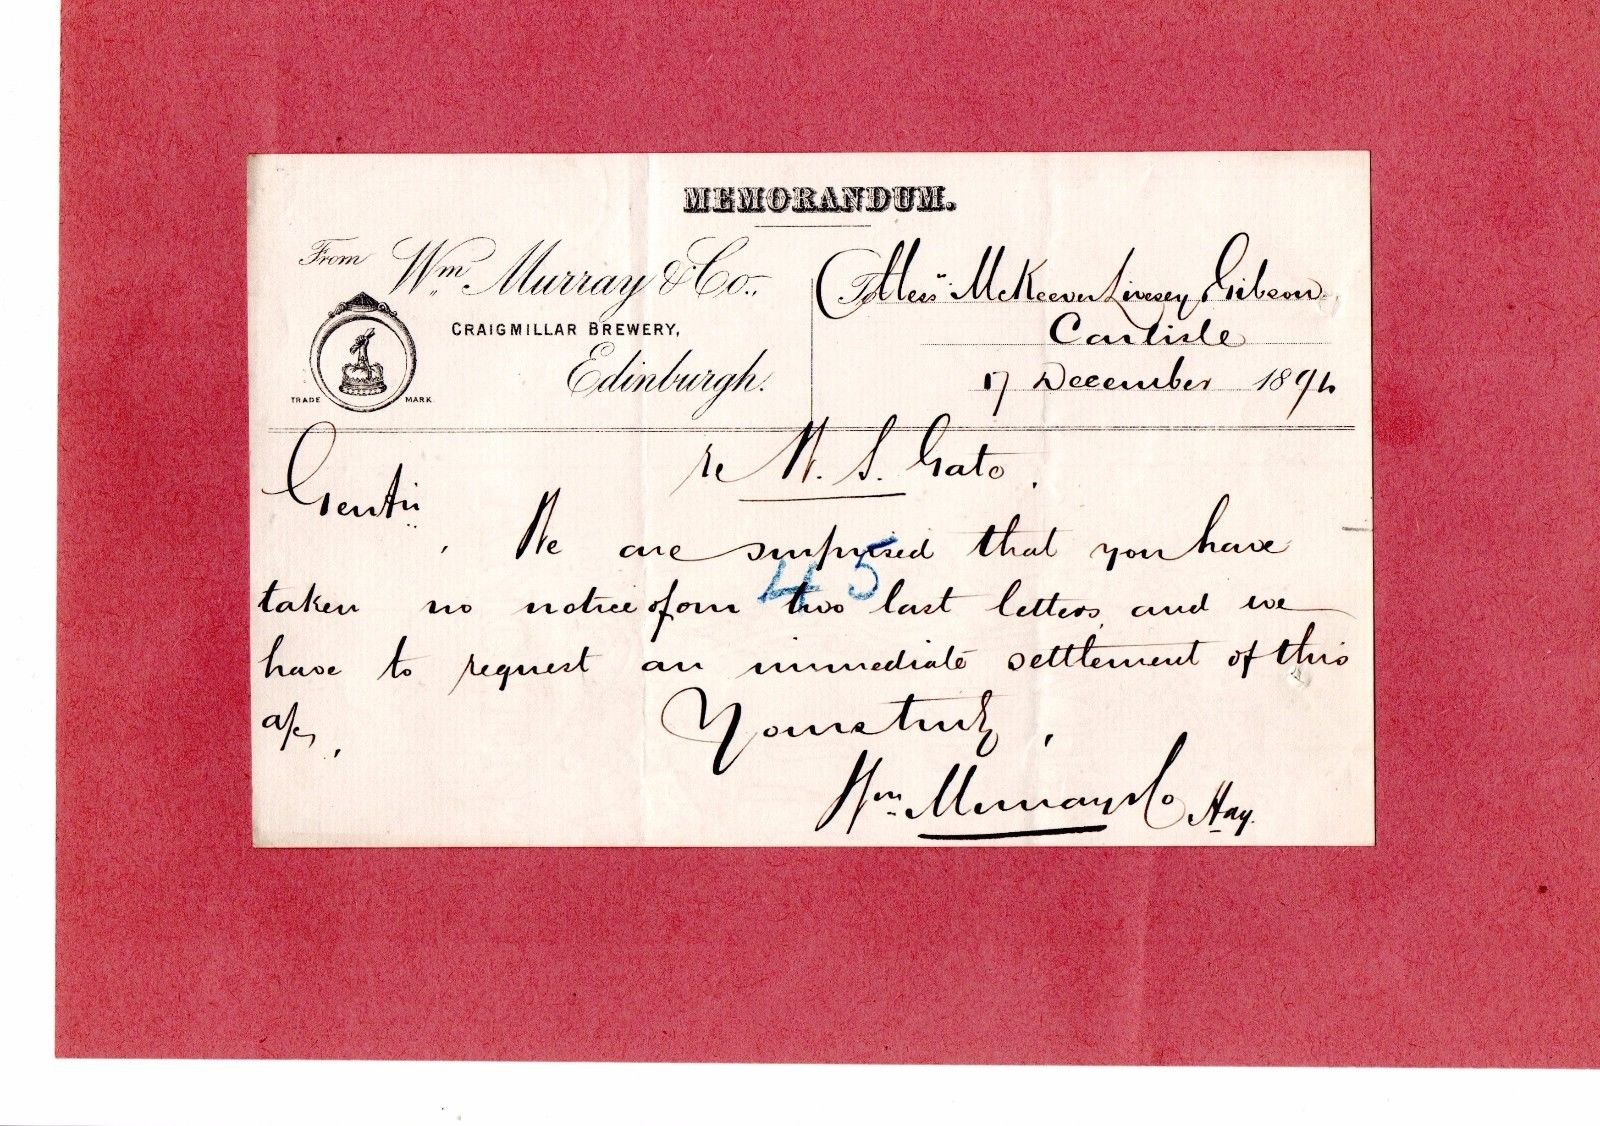 MEMORANDUM.
From Wm Murray & Co.,
CRAIGMILLAR BREWERY,
Edinburgh.
TRADE MARK
To Messrs McKeever Livesey Gibson
Carlisle
17 December 1894
re W. S. Gato.
Gentn
We are surprised that you have
45
taken no notice of our two last letters, and we
have to request an immediate settlement of this
a/c,
Yours truly,
Wm Murray & Co
Hay.